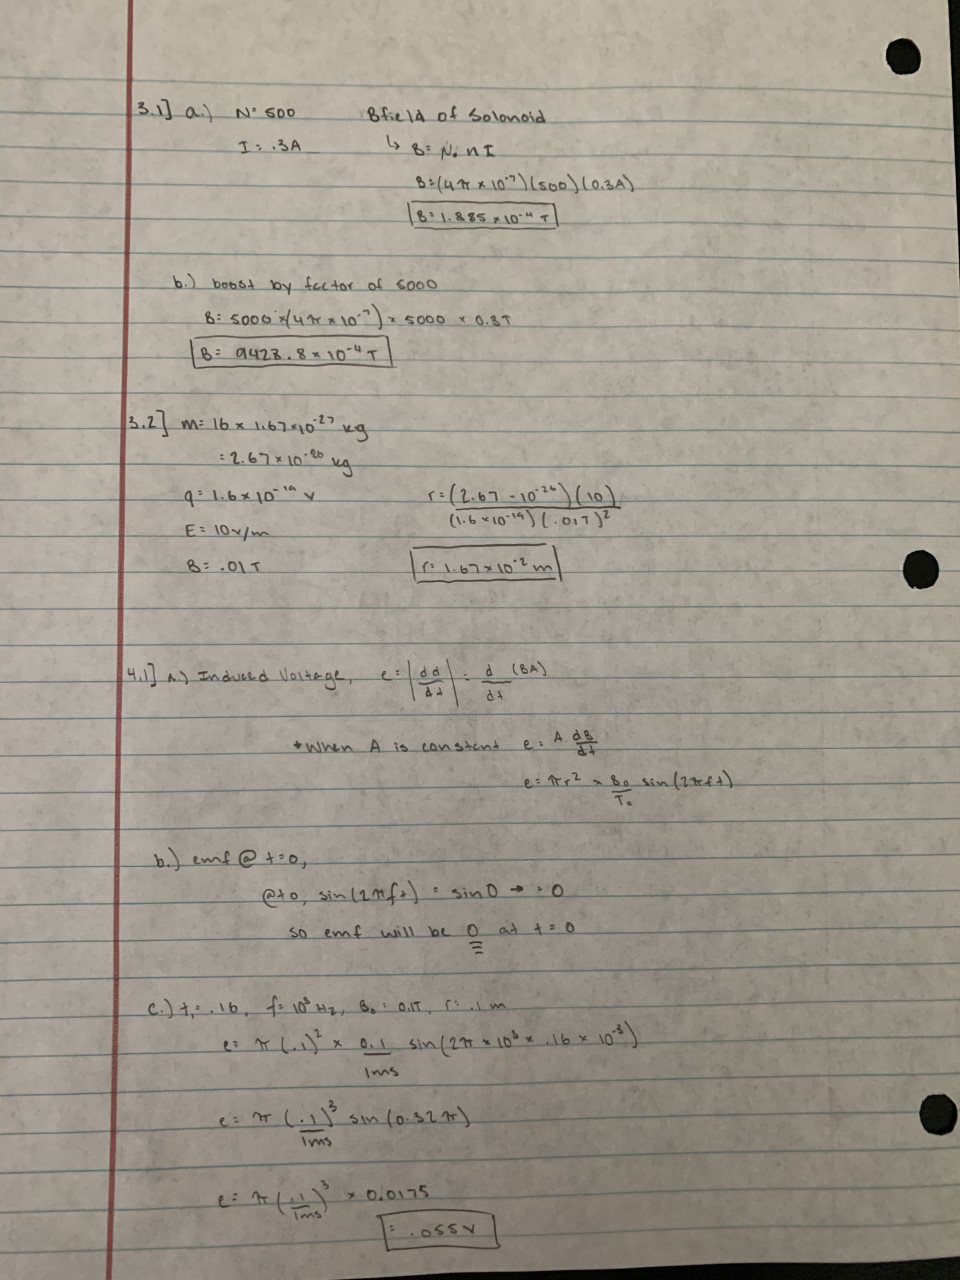 3.1] a.) N= 500 Bfield of Solonoid
I = .3A ↳ B= N₀ n I
B=(4π × 10⁻⁷)(500)(0.3A)
B= 1.885 × 10⁻⁴ T
b.) boost by factor of 5000
B= 5000 ×(4π × 10⁻⁷) × 5000 × 0.3T
B= 9428.8 × 10⁻⁴ T
3.2] m= 16 × 1.67×10⁻²⁷ kg
= 2.67 × 10⁻²⁶ kg
q= 1.6 × 10⁻¹⁹ v r= (2.67 - 10⁻²⁶)(10)
(1.6 × 10⁻¹⁹)(.01T)²
E= 10v/m
B= .01T r= 1.67×10⁻² m
4.1] a.) Induced Voltage, e= |dd/dt| = d/dt (BA)
*When A is constant e= A dB/dt
e= πr² × B₀/T₀ sin(2πft)
b.) emf @ t=0,
@t0, sin(2πft) = sin0 → = 0
so emf will be 0 at t=0
c.) t₁= .16, f= 10³ Hz, B₀= 0.1T, r= .1m
e= π(.1)² × 0.1/1ms sin(2π × 10³ × .16 × 10⁻³)
e= π (.1)³/1ms sin(0.32π)
e= π(.1/1ms)³ × 0.0175
= .055v